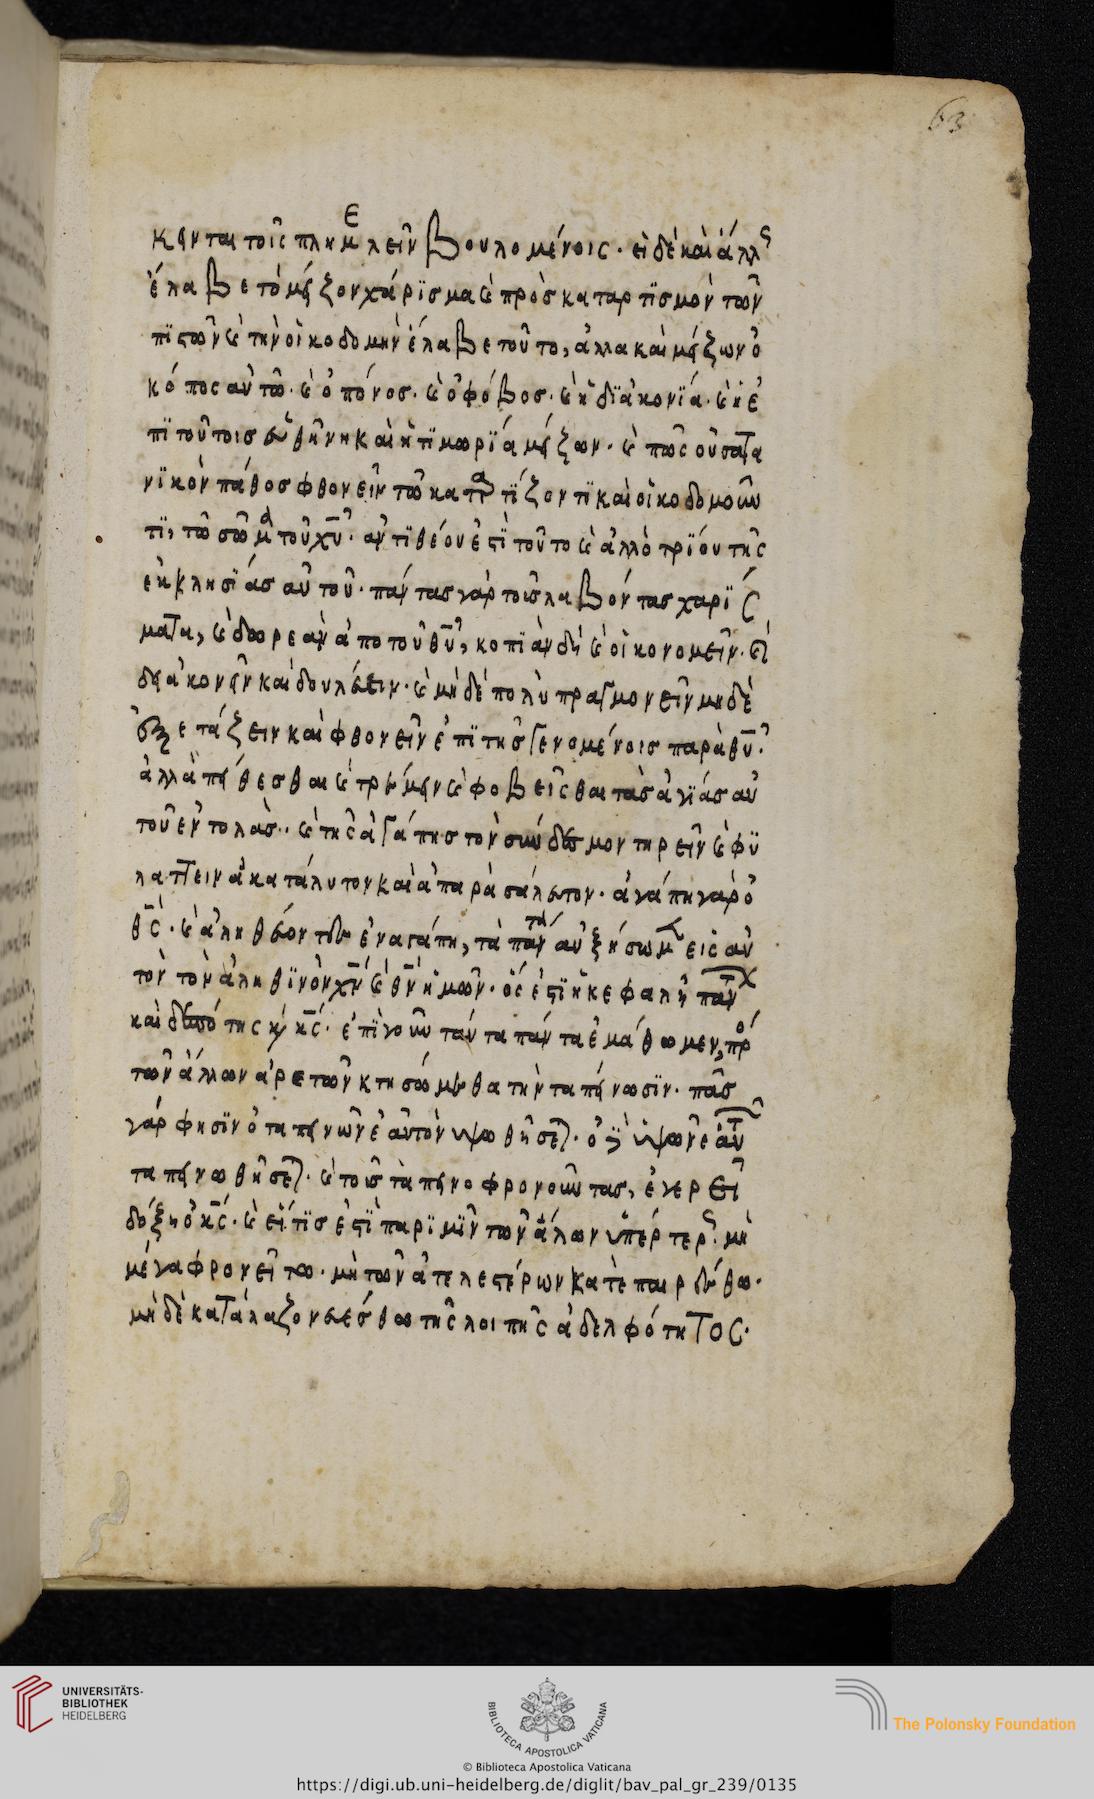 63
κηνται τοῖς πλημελεῖν βουλομένοις· εἰ δὲ καὶ ἄλλος
ἔλαβε τὸ μεῖζον χάρϊσμα καὶ πρὸς καταρτϊσμὸν τῶν
πϊστῶν καὶ τὴν οἰκοδομὴν ἔλαβε τοῦτο, ἀλλα καὶ μείζων ὁ
κόπος αὐτῶ· καὶ ὁ πόνος· καὶ ὁ φόβος· καὶ ἡ δϊακονϊά· καὶ ἡ ἐ
πϊ τούτοις εὐθήνη καὶ ἡ τϊμωρϊά μείζων· καὶ πῶς οὐ σατα
νϊκὸν πάθος φθονεῖν τῶ καταρτϊζοντϊ καὶ οἰκοδομοῦν
τϊ, τῶ σῶμα τοῦ χυ̅· ἀντϊθέον ἐστϊ τοῦτο καὶ ἀλλότρϊον τῆς
ἐκκλησϊάς αὐτοῦ· πάντας γὰρ τοὺς λαβόντας χαρϊς
ματα, καὶ δωρεὰν ἀπο τοῦ θυ̅, κοπϊὰν δεῖ καὶ οἰκονομεῖν· καὶ
δϊακονεῖν καὶ δουλεύειν· καὶ μὴ δὲ πολυπραγμονεῖν μηδὲ
ἐξετάζειν καὶ φθονεῖν ἐπϊ τῆς γενομένοις παρὰ θυ̅·
ἀλλὰ πείθεσθαι καὶ τρέμειν καὶ φοβεῖσθαι τὰς ἁγϊάς αὐ
τοῦ ἐντολὰς·· καὶ τῆς ἀγάπης τὸν σύνδεσμον τηρεῖν καὶ φϋ
λαττειν ἀκατάλυτον καὶ ἀπαράσάλευτον· ἀγάπη γὰρ ὁ
θς̅· καὶ ἀληθεύοντες ἐν αγάπη, τὰ πάντα αὐξήσωμεν εἰς αὐ
τὸν τὸν ἀληθϊνὸν χν̅ καὶ θν̅ ἡμῶν· ὅς ἐστϊ ἡ κεφαλὴ πάντων
καὶ δεσπότης καὶ κς̅· ἐπϊ γοῦν ταύτα πάντα ἐμάθωμεν, πρό
τῶν ἄλλων ἀρετῶν κτησώμεθα τὴν ταπήνωσϊν· πᾶς
γάρ φησϊν ὁ ταπηνῶν ἑαὐτὸν ὑψωθήσεται· ὁ δὲ ὑψῶν ἑαὐτὸν
ταπηνωθήσεται· καὶ τοῖς ταπηνοφρονοῦντας, ἐγερεῖ
δόξη ὁ κς̅· καὶ εἴ τϊς ἐστϊ παρϊμϊν τῶν ἄλων ὑπέρτερος· μὴ
μέγα φρονείτω· μὴ τῶν ἀτελεστέρων κατὲπαιρέσθω·
μὴ δὲ καταλαζονευέσθω τῆς λοιπῆς ἀδελφότητος·
UNIVERSITÄTS-
BIBLIOTHEK
HEIDELBERG
BIBLIOTECA APOSTOLICA VATICANA
The Polonsky Foundation
© Biblioteca Apostolica Vaticana
https://digi.ub.uni-heidelberg.de/diglit/bav_pal_gr_239/0135